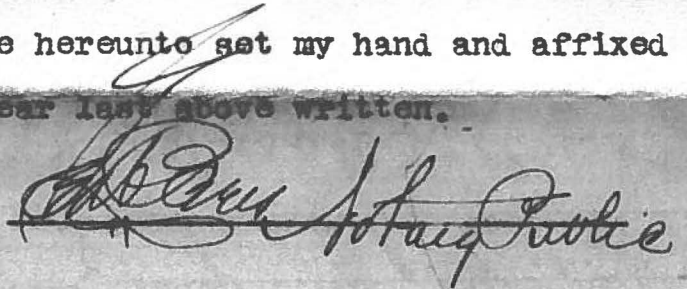 e hereunto set my hand and affixed
ear last above written.
Notary Public